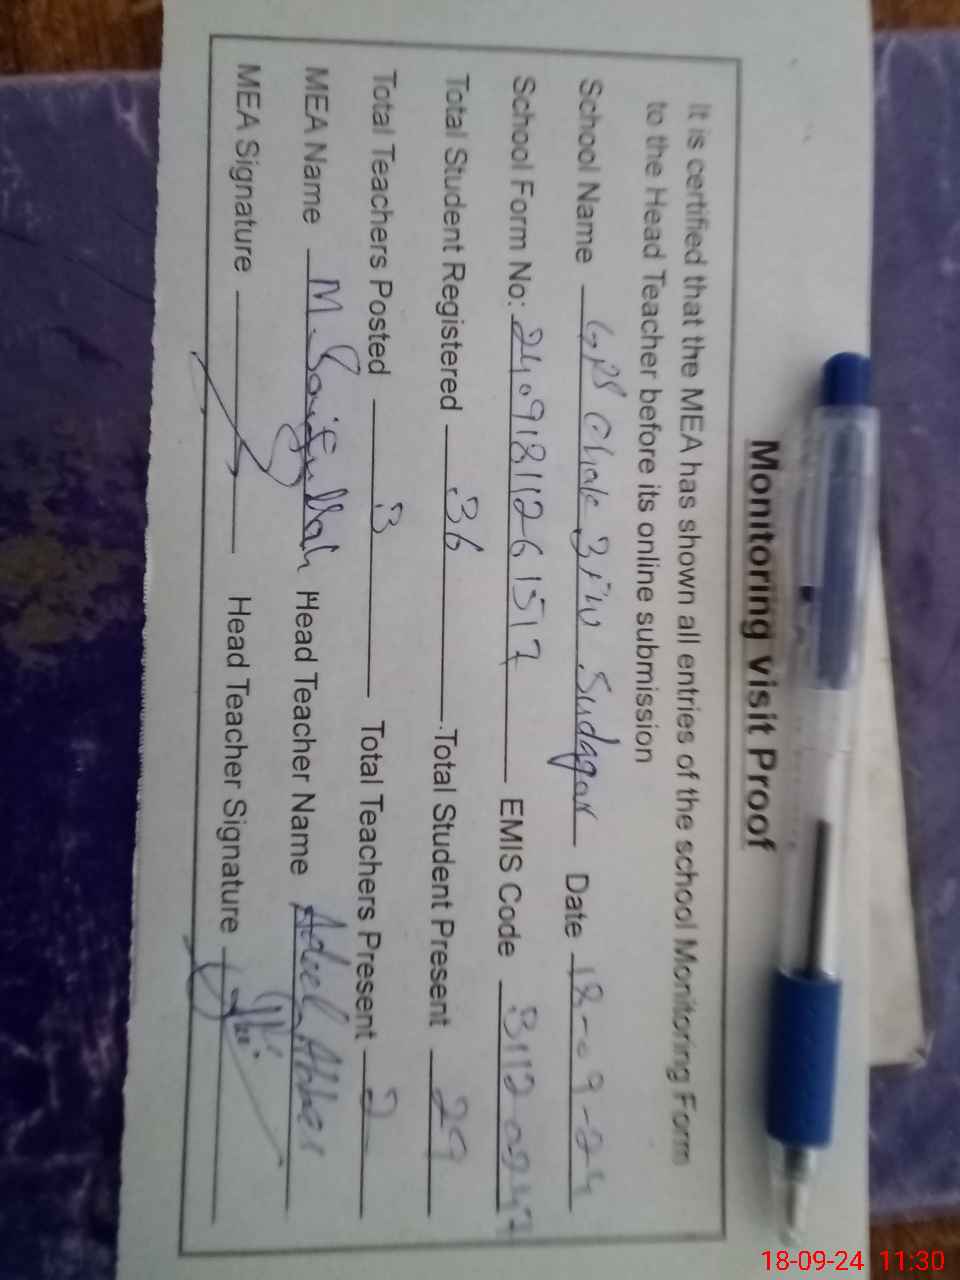 Monitoring visit Proof
It is certified that the MEA has shown all entries of the school Monitoring Form
to the Head Teacher before its online submission
School Name GPS Chak Sudagar Date 18-09-24
School Form No: EMIS Code 31120247
Total Student Registered 36 Total Student Present 29
Total Teachers Posted 3 Total Teachers Present 2
MEA Name M. Saifullah Head Teacher Name Adeel Abbas
MEA Signature Head Teacher Signature
18-09-24 11:30